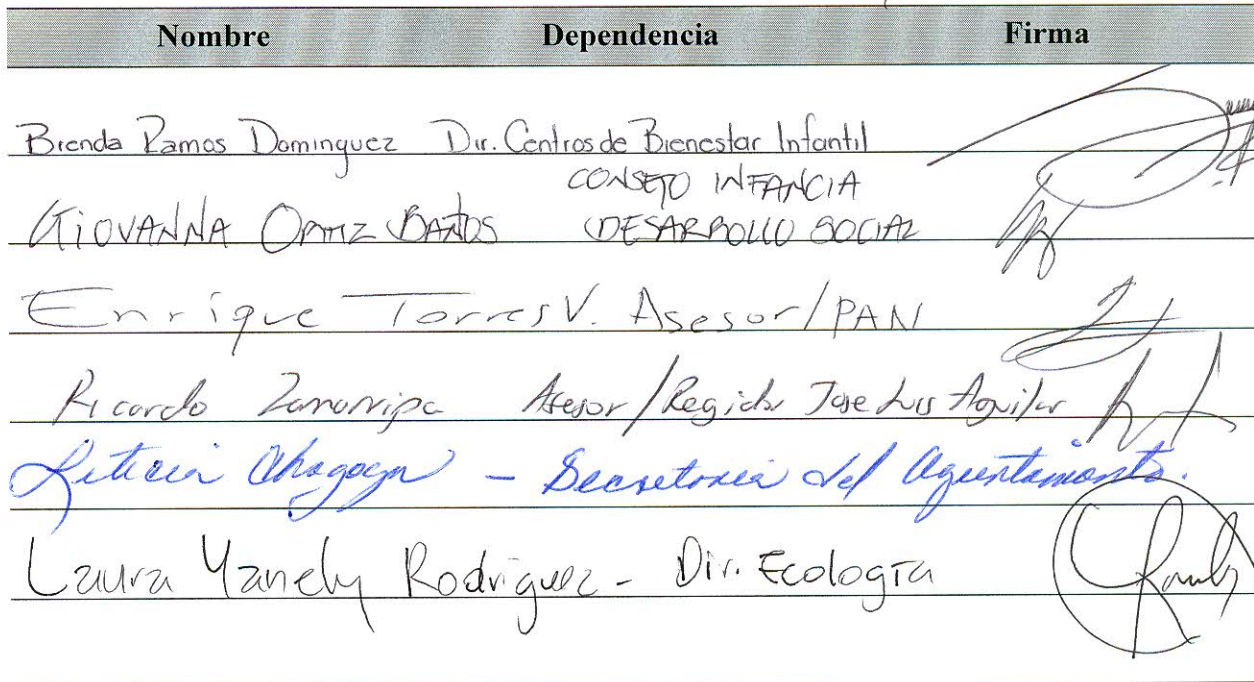 Nombre Dependencia Firma
Brenda Ramos Dominguez Dir. Centros de Bienestar Infantil
CONSEJO INFANCIA
GIOVANNA ORTIZ BAÑOS DESARROLLO SOCIAL
Enrique Torres V. Asesor/PAN
Ricardo Zamarripa Asesor/Regidor Jose Luis Aguilar
Leticia - Secretaria del Ayuntamiento.
Laura Yanely Rodriguez - Dir. Ecología